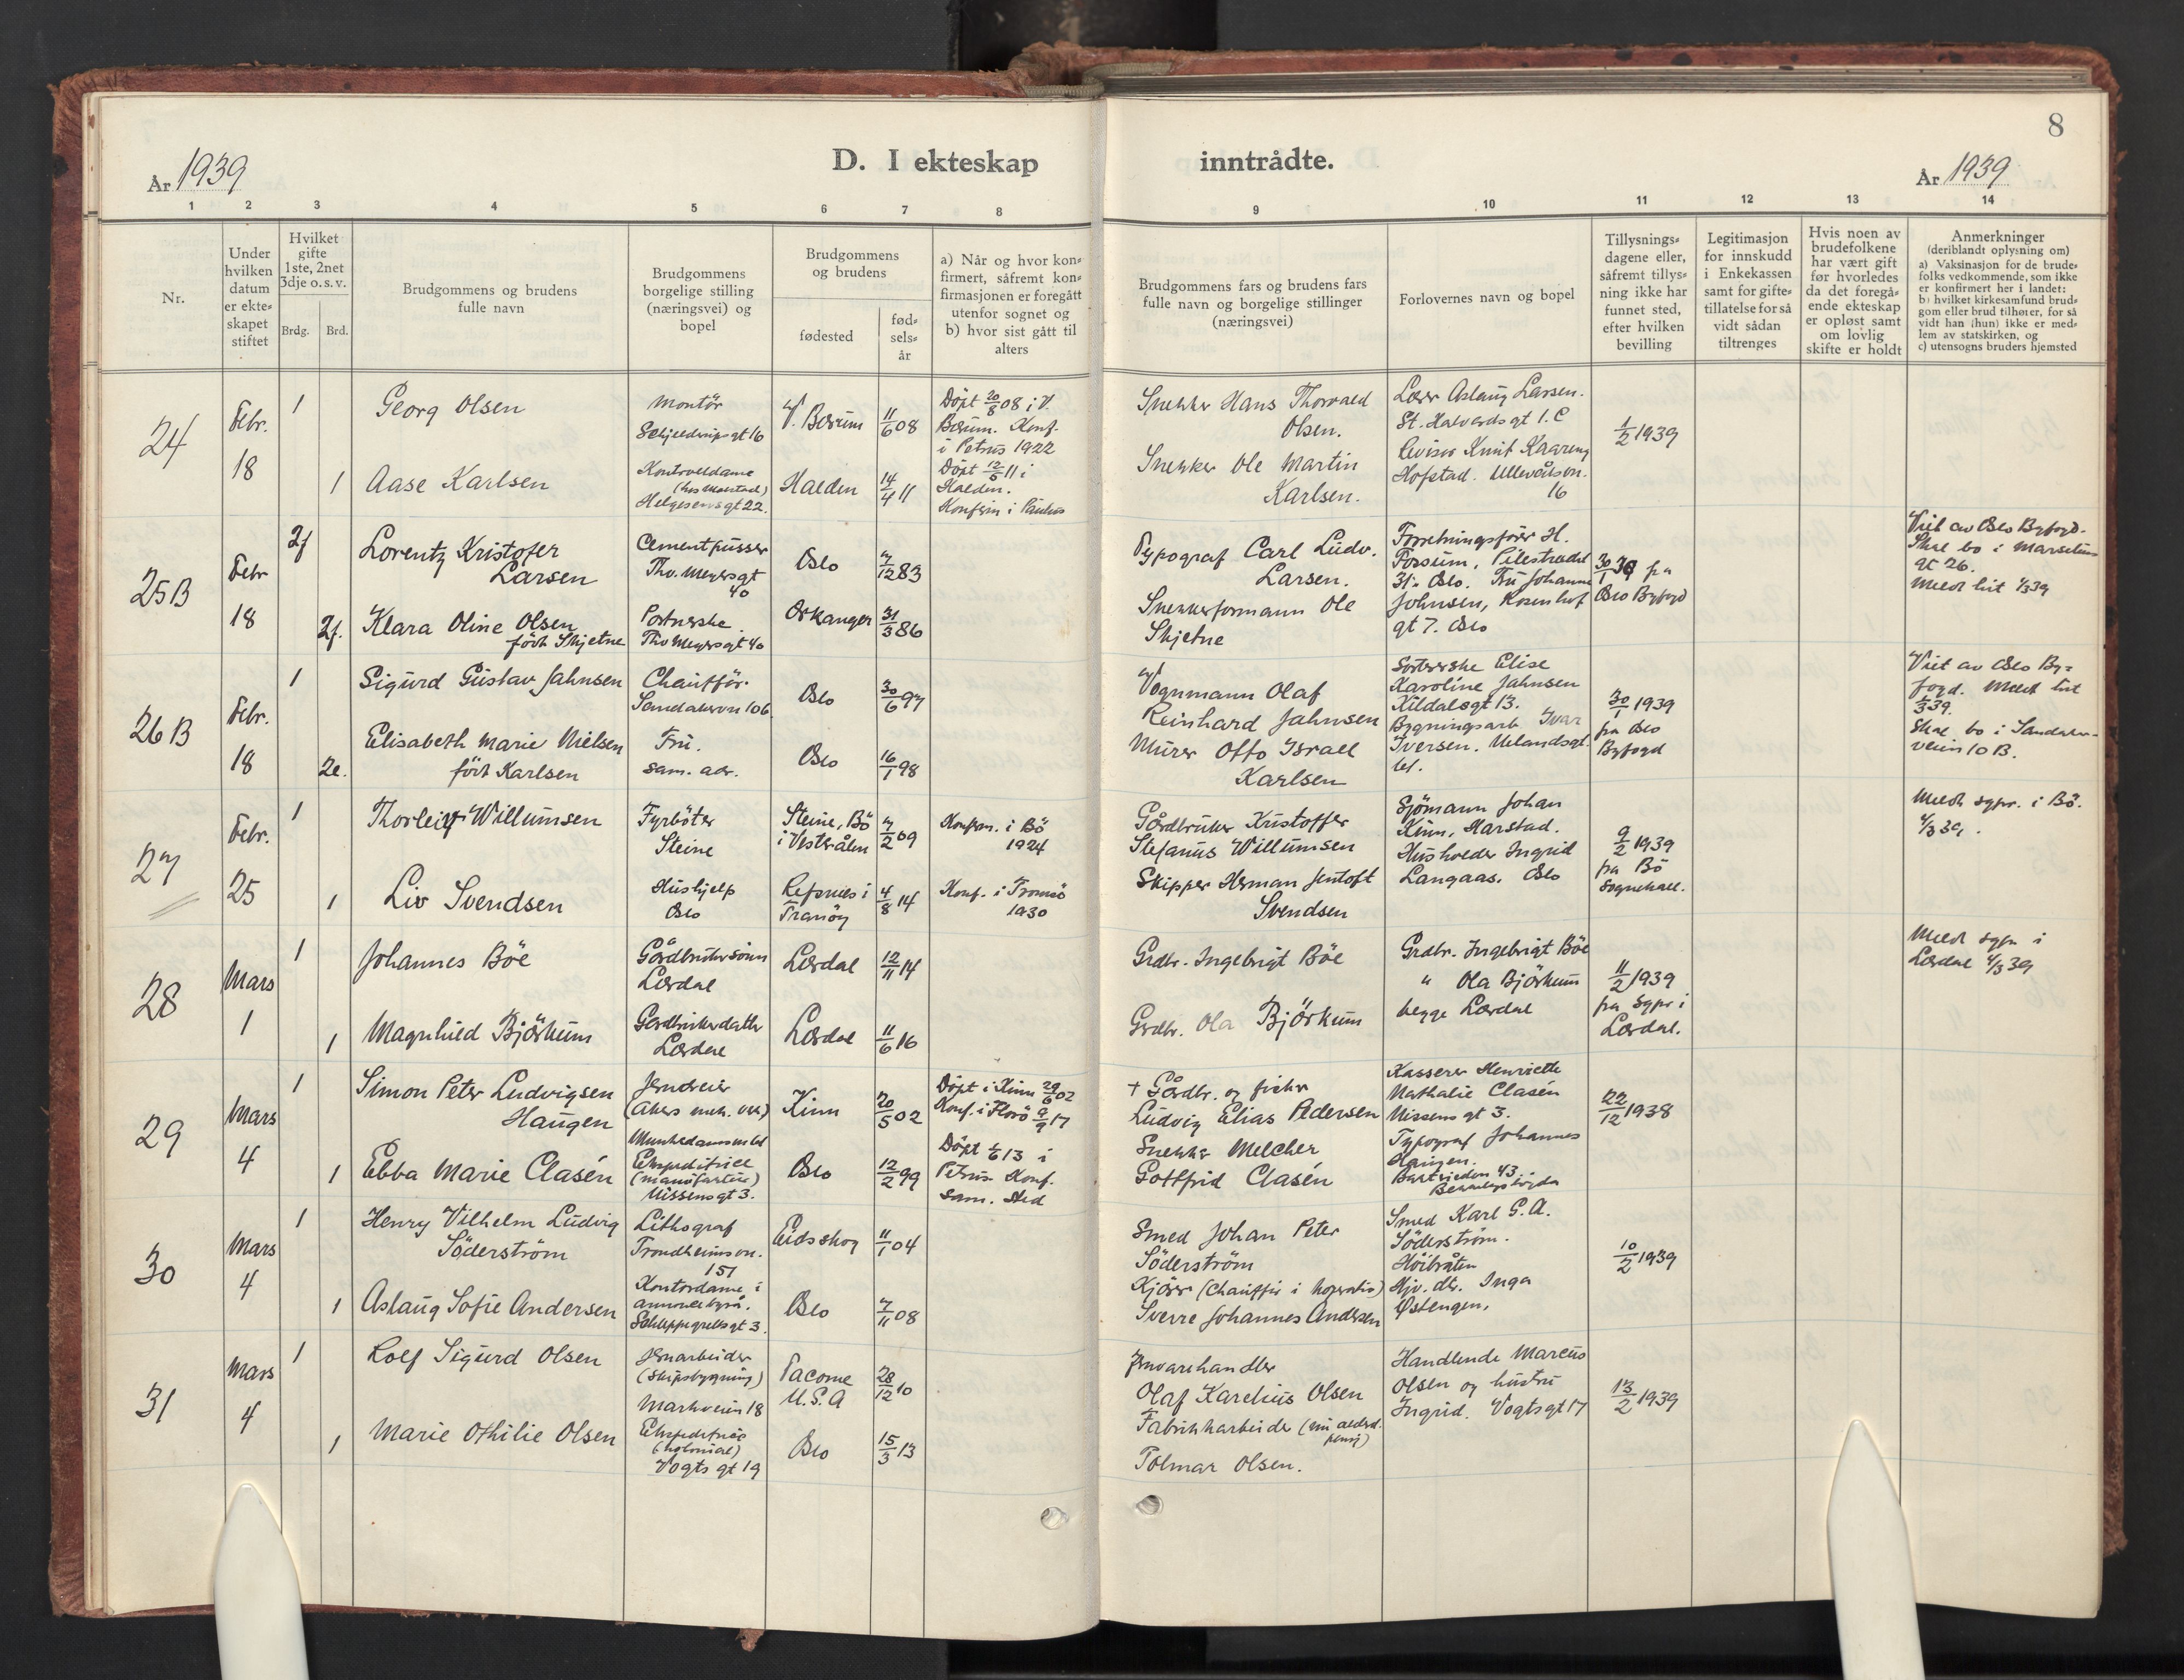 8
År 1939
D. I ekteskap inntrådte.
År 1939
1 2 3 4 5 6 7 8 9 10 11 12 13 14
Nr.
Under hvilken datum er ekte=skapet stiftet
Hvilket gifte 1ste, 2net 3dje o.s.v.
Brdg. Brd.
Brudgommens og brudens fulle navn
Brudgommens borgelige stilling (næringsvei) og bopel
Brudgommens og brudens
fødested
fød=sels=år
a) Når og hvor kon=firmert, såfremt kon=firmasjonen er foregått utenfor sognet og b) hvor sist gått til alters
Brudgommens fars og brudens fars fulle navn og borgelige stillinger (næringsvei)
Forlovernes navn og bopel
Tillysnings=dagene eller, såfremt tillys=ning ikke har funnet sted, efter hvilken bevilling
Legitimasjon for innskudd i Enkekassen samt for gifte=tillatelse for så vidt sådan tiltrenges
Hvis noen av brudefolkene har vært gift før hvorledes da det foregå=ende ekteskap er opløst samt om lovlig skifte er holdt
Anmerkninger (deriblandt oplysning om) a) Vaksinasjon for de brude=folks vedkommende, som ikke er konfirmert her i landet: b) hvilket kirkesamfund brud=gom eller brud tilhører, for så vidt han (hun) ikke er med=lem av statskirken, og c) utensogns bruders hjemsted
24
Febr.
18
1
Georg Olsen
Montör
Schjelderupsgt 16
V. Bærum
11/6 08
Döpt 20/8 08 i V.
Bærum. Konf.
i Petrus 1922
Snekker Hans Thorvald
Olsen.
Lærer Aslaug Larsen.
St. Halvardsgt 1. C
1/2 1939
1
Aase Karlsen
Kontroldame
Helgesensgt 22.
Halden
14/4 11
Döpt 12/5 11 i
Halden.
Konfirm i Paulus
Snekker Ole Martin
Karlsen.
Revisor Knut Kaareng
Hofstad. Ullevålsvn.
16
25B
Febr
18
2f
Lorentz Kristofer
Larsen
Cementpusser
Thv. Meyersgt
40
Oslo
7/12 83
Typograf Carl Ludv.
Larsen.
Forretningsförer H.
Forsum, Pilestredet
31. Oslo. Fru Johanne
Johnsen, Rosenhof
gt 7. Oslo
30/1 39 fra
Oslo Byfogd
Viet av Oslo Byfogd.
Skal bo i Marselius
gt 26.
Meldt hit 1/3 39
2f.
Klara Oline Olsen
född Skjetne
Portnerske
Thv Meyersgt 40
Orkanger
31/3 86
Snekkerformann Ole
Skjetne
26B
Febr.
18
1
Sigurd Gustav Jahnsen
Chaufför.
Sandakervn 106
Oslo
30/6 97
Vognmann Olaf
Reinhard Jahnsen
Sorterske Elise
Karoline Jahnsen
Kildalsgt 13.
Bygningsarb. Ivar
Iversen. Uelandsgt.
61.
30/1 1939
fra Oslo
Byfogd
Viet av Oslo By=
fogd. Meldt hit
1/3 39.
Skal bo i Sandaker=
veien 10 B.
2e.
Elisabeth Marie Nielsen
född Karlsen
Fru.
sam. adr.
Oslo
16/1 98
Murer Otto Israel
Karlsen
27
Febr.
25
1
Thorleif Willumsen
Fyrböter
Steine
Steine, Bö
i Vesterålen
7/2 09
Konfirm. i Bö
1924
Gårdbruker Kristoffer
Stefanus Willumsen
Sjömann Johan
Kinn, Harstad.
Husholder Ingrid
Langaas. Oslo
9/2 1939
fra Bö
Sognekall.
Meldt sgpr. i Bö.
4/3 39.
1
Liv Svendsen
Hushjelp
Oslo
Refsnes i
Tranöy
4/8 14
Konf. i Tromsö
1930
Skipper Herman Jentoft
Svendsen
28
Mars
1
1
Johannes Böe
Gårdbrukersönn
Lærdal
Lærdal
12/11 14
Grdbr. Ingebrigt Böe
Grdbr. Ingebrigt Böe
" Ola Björkum
begge Lærdal
11/2 1939
fra Sgpr i
Lærdal.
Meldt sgpr i
Lærdal 4/3 39
1
Magnhild Björkum
Gårdbrukerdatter
Lærdal
Lærdal
11/6 16
Grdbr. Ola Björkum
29
Mars
4
1
Simon Peter Ludvigsen
Haugen
Jerndreier
(Akers mek. verk)
Munkedamsvn 61
Kinn
20/5 02
Döpt i Kinn 29/6 02
Konf. i Florö 9/9 17
+ Gårdbr. og fisker
Ludvig Elias Pedersen
Kasserer Henriette
Nathalie Clasén
Nissens gt 3.
Typograf Johannes
Haugen.
22/12 1938
1
Ebba Marie Clasén
Ekspeditrice
(manufaktur)
Nissensgt 3.
Oslo
12/2 99
Döpt 1/6 13 i
Petrus. Konf.
sam. sted
Snekker Melcher
Gottfrid Clasén
30
Mars
4
1
Henry Vilhelm Ludvig
Söderström
Lithograf
Trondheimsvn.
151
Eidsskog
11/1 04
Smed Johan Peter
Söderström
Smed Karl G. A.
Söderström.
Höibråten
Hjv. dtr. Inga
Østengen,
10/2 1939
1
Aslaug Sofie Andersen
Kontordame i
annoncebyrå.
Schleppegrellsgt 3.
Oslo
7/11 08
Kjörer (Chauffør i Kooperativ)
Sverre Johannes Andersen
31
Mars
4
1
Rolf Sigurd Olsen
Jernarbeider
(Skipsbygning)
Markveien 18
Tacome
U.S.A
28/12 10
Jernvarehandler
Olaf Karelius Olsen
Handlende Marcus
Olsen og hustru
Ingrid. Vogtsgt 17
13/2 1939
1
Marie Othilie Olsen
Ekspeditrice
(kolonial)
Vogts gt 19
Oslo
15/3 13
Fabrikkarbeider (nu alderd.
pensj)
Tolmar Olsen.